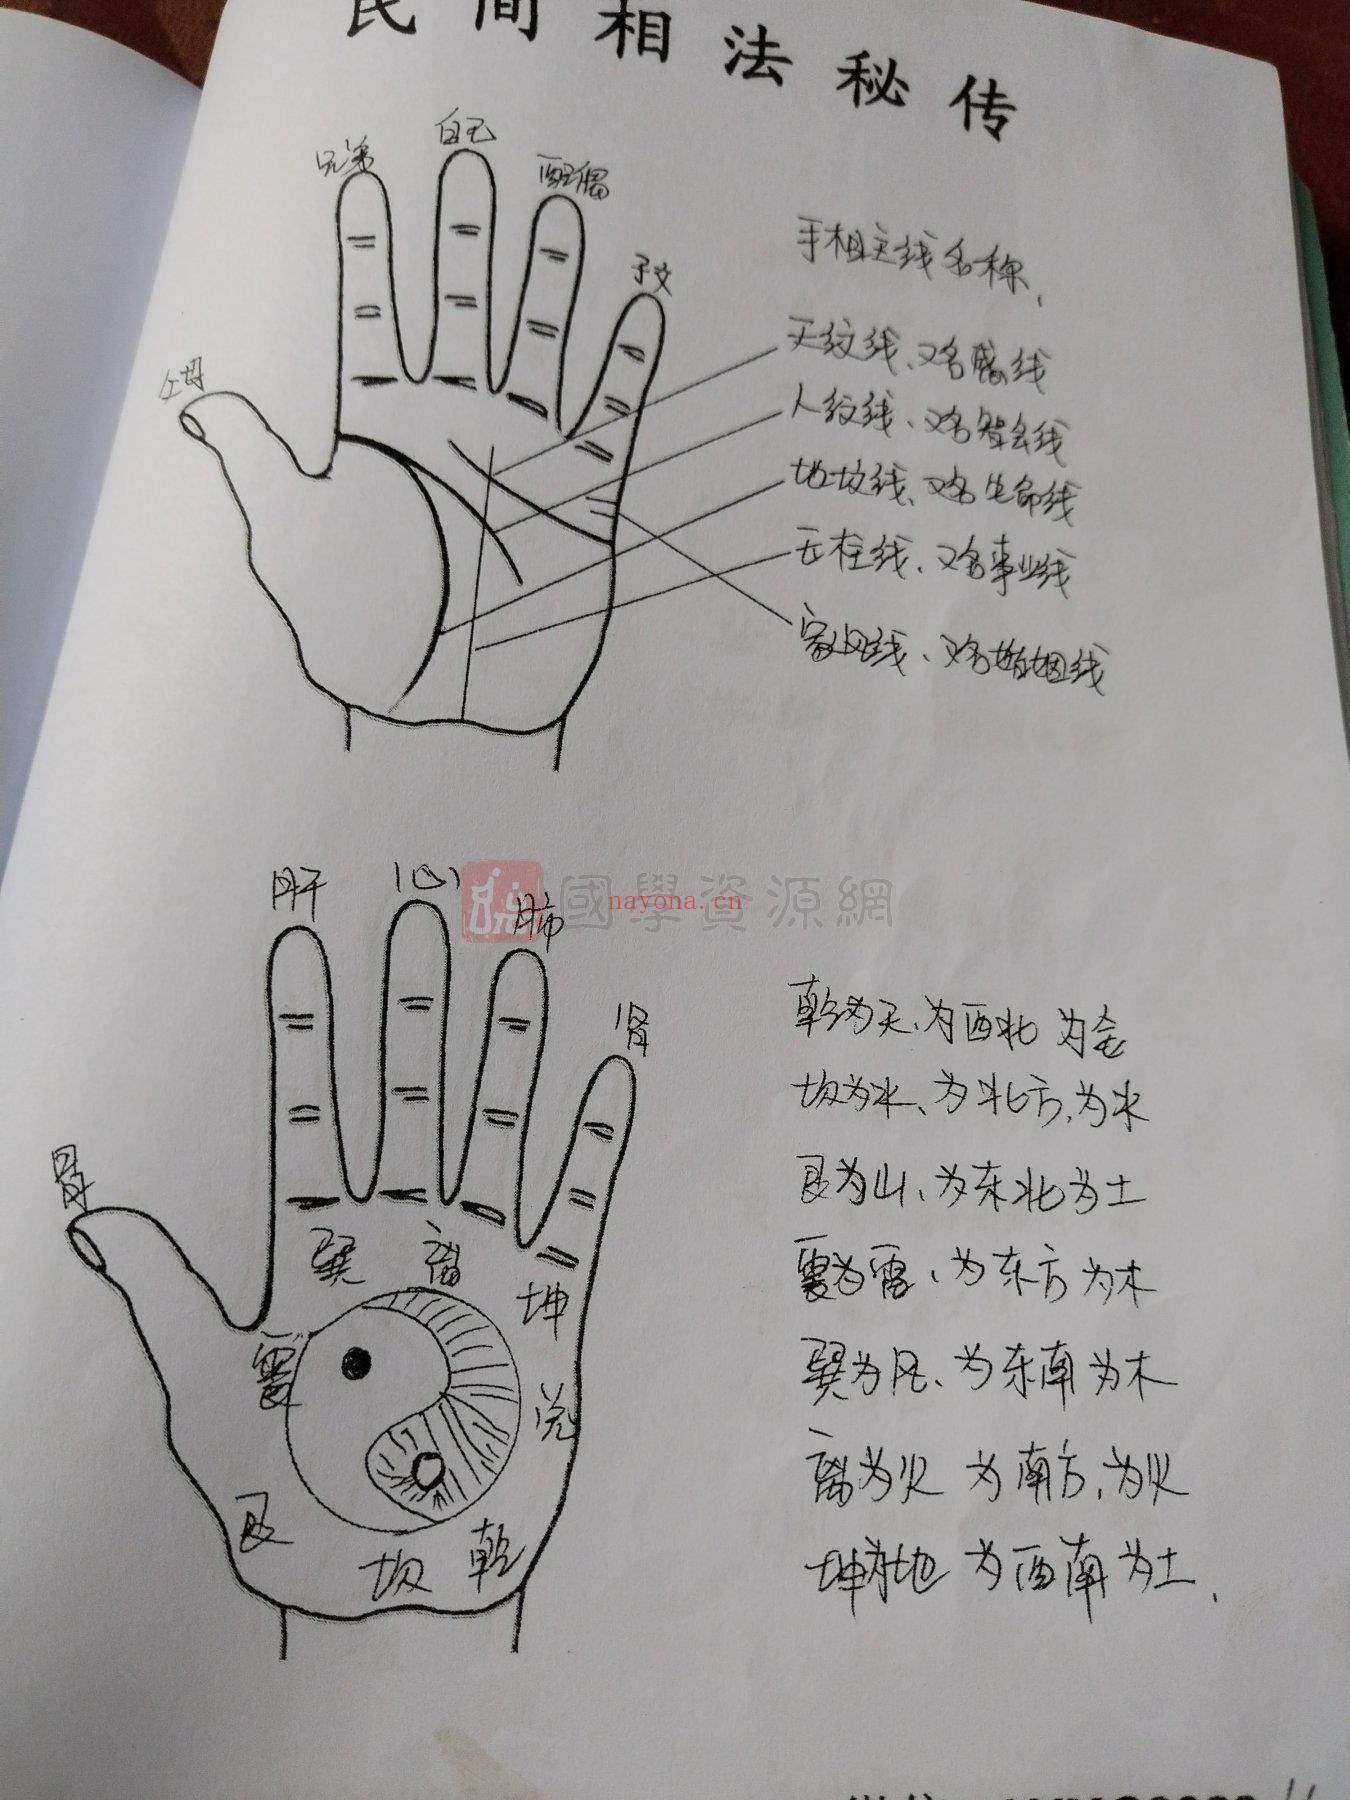 民间相法秘传
兄弟
自己
配偶
子女
父母
手相主线名称、
天纹线、又名感线
人纹线、又名智会线
地坟线、又名生命线
天柱线、又名事业线
家风线、又名婚姻线
國學資源網
nayona.cn
肝
心
肺
肾
胃
巽
离
坤
震
兑
艮
坎
乾
乾为天、为西北 为金
坎为水、为北方、为水
艮为山、为东北为土
震为雷、为东方为木
巽为风、为东南为木
离为火 为南方、为火
坤为地 为西南为土.